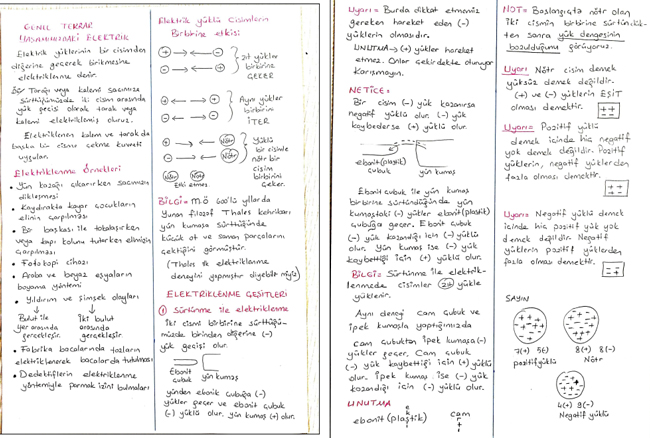 GENEL TEKRAR
YAŞAMIMIZDAKİ ELEKTRİK
Elektrik yüklerinin bir cisimden
diğerine geçerek birikmesine
elektriklenme denir.
Bir Tarağı veya kalemi saçımıza
sürttüğümüzde iki cisim arasında
yük geçişi olarak tarak veya
kalemi elektriklemiş oluruz.
Elektriklenen kalem ve tarak da
başka bir cisme çekme kuvveti
uygular.
Elektriklenme Örnekleri
• Yün kazağı çıkarırken saçımızın
dikleşmesi
• Kaydırakta kayar çocukların
elinin çarpılması
• Bir başkası ile tokalaşırken
veya kapı kolunu tutarken elimizin
çarpılması
• Fotokopi cihazı
• Araba ve beyaz eşyaların
boyama yöntemi
• Yıldırım ve şimşek olayları
Bulut ile
yer arasında
gerçekleşir.
İki bulut
arasında
gerçekleşir.
• Fabrika bacalarında tozların
elektriklenerek bacalarda tutulması
• Dedektiflerin elektriklenme
yöntemiyle parmak izini bulmaları
Elektrik yüklü Cisimlerin
Birbirine etkisi
+ -
- +
Zıt yükler
birbirini
ÇEKER
+ +
- -
Aynı yükler
birbirini
İTER
+ Nötr
- Nötr
Nötr Nötr
Etki etmez
Yüklü
bir cisimle
nötr bir
cisim
birbirini
çeker.
BİLGİ = MÖ 600'lü yıllarda
Yunan filozof Thales kehribarı
yün kumaşa sürttüğünde
küçük ot ve saman parçalarını
çektiğini görmüştür.
(Thales ilk elektriklenme
deneyini yapmıştır diyebilir miyiz)
ELEKTRİKLENME ÇEŞİTLERİ
① Sürtünme ile elektriklenme
İki cismi birbirine sürttüğü-
müzde birinden diğerine (-)
yük geçişi olur.
Ebonit
çubuk
yün kumaş
yünden ebonit çubuğa (-)
yükler geçer ve ebonit çubuk
(-) yüklü olur. yün kumaş (+) olur.
Uyarı = Burda dikkat etmemiz
gereken hareket eden (-)
yüklerin olmasıdır.
UNUTMA → (+) yükler hareket
etmez. Onlar çekirdekte oturuyor
Karışmayın.
NETİCE:
Bir cisim (-) yük kazanırsa
negatif yüklü olur. (-) yük
kaybederse (+) yüklü olur.
ebonit (plastik)
çubuk
yün kumaş
Ebonit çubuk ile yün kumaş
birbirine sürtündüğünde yün
kumaştaki (-) yükler ebonit (plastik)
çubuğa geçer. Ebonit çubuk
(-) yük kazandığı için (-) yüklü
olur. Yün kumaş ise (-) yük
kaybettiği için (+) yüklü olur.
Bilgi: Sürtünme ile elektrik-
lenmede cisimler zıt yükle
yüklenir.
Aynı deneyi cam çubuk ve
ipek kumaşla yaptığımızda
cam çubuktan ipek kumaşa (-)
yükler geçer. Cam çubuk
(-) yük kaybettiği için (+) yüklü
olur. İpek kumaş ise (-) yük
kazandığı için (-) yüklü olur.
UNUTMA
ebonit (plastik)
cam
NOT = Başlangıçta nötr olan
iki cismin birbirine sürtündük-
ten sonra yük dengesinin
bozulduğunu görüyoruz.
Uyarı: Nötr cisim demek
yüksüz demek değildir.
(+) ve (-) yüklerin EŞİT
olması demektir.
Uyarı = Pozitif yüklü
demek içinde hiç negatif
yok demek değildir. Pozitif
yüklerin, negatif yüklerden
fazla olması demektir.
Uyarı = Negatif yüklü demek
içinde hiç pozitif yük yok
demek değildir. Negatif
yüklerin pozitif yüklerden
fazla olması demektir.
SAYIN
7(+) 5(-)
pozitif yüklü
8(+) 8(-)
Nötr
4(+) 9(-)
Negatif yüklü